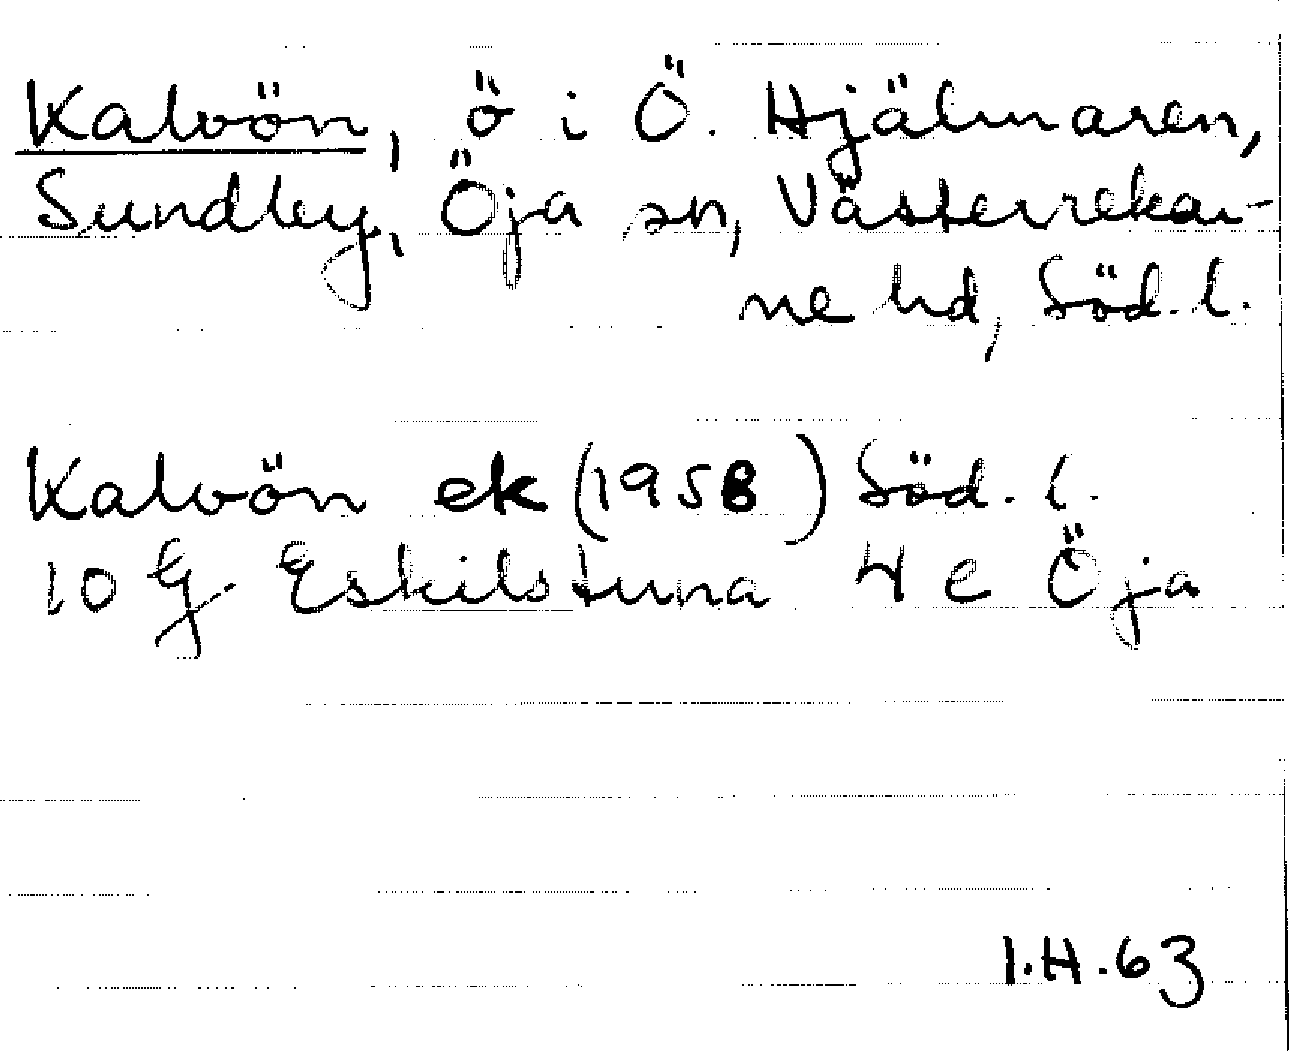 Kalvön, ö i Ö. Hjälmaren,
Sundby, Öja sn, Västerrekar-
ne hd, Söd. l.
Kalvön ek (1958) Söd. l.
10 G Eskilstuna 4 e Öja
I.H.63